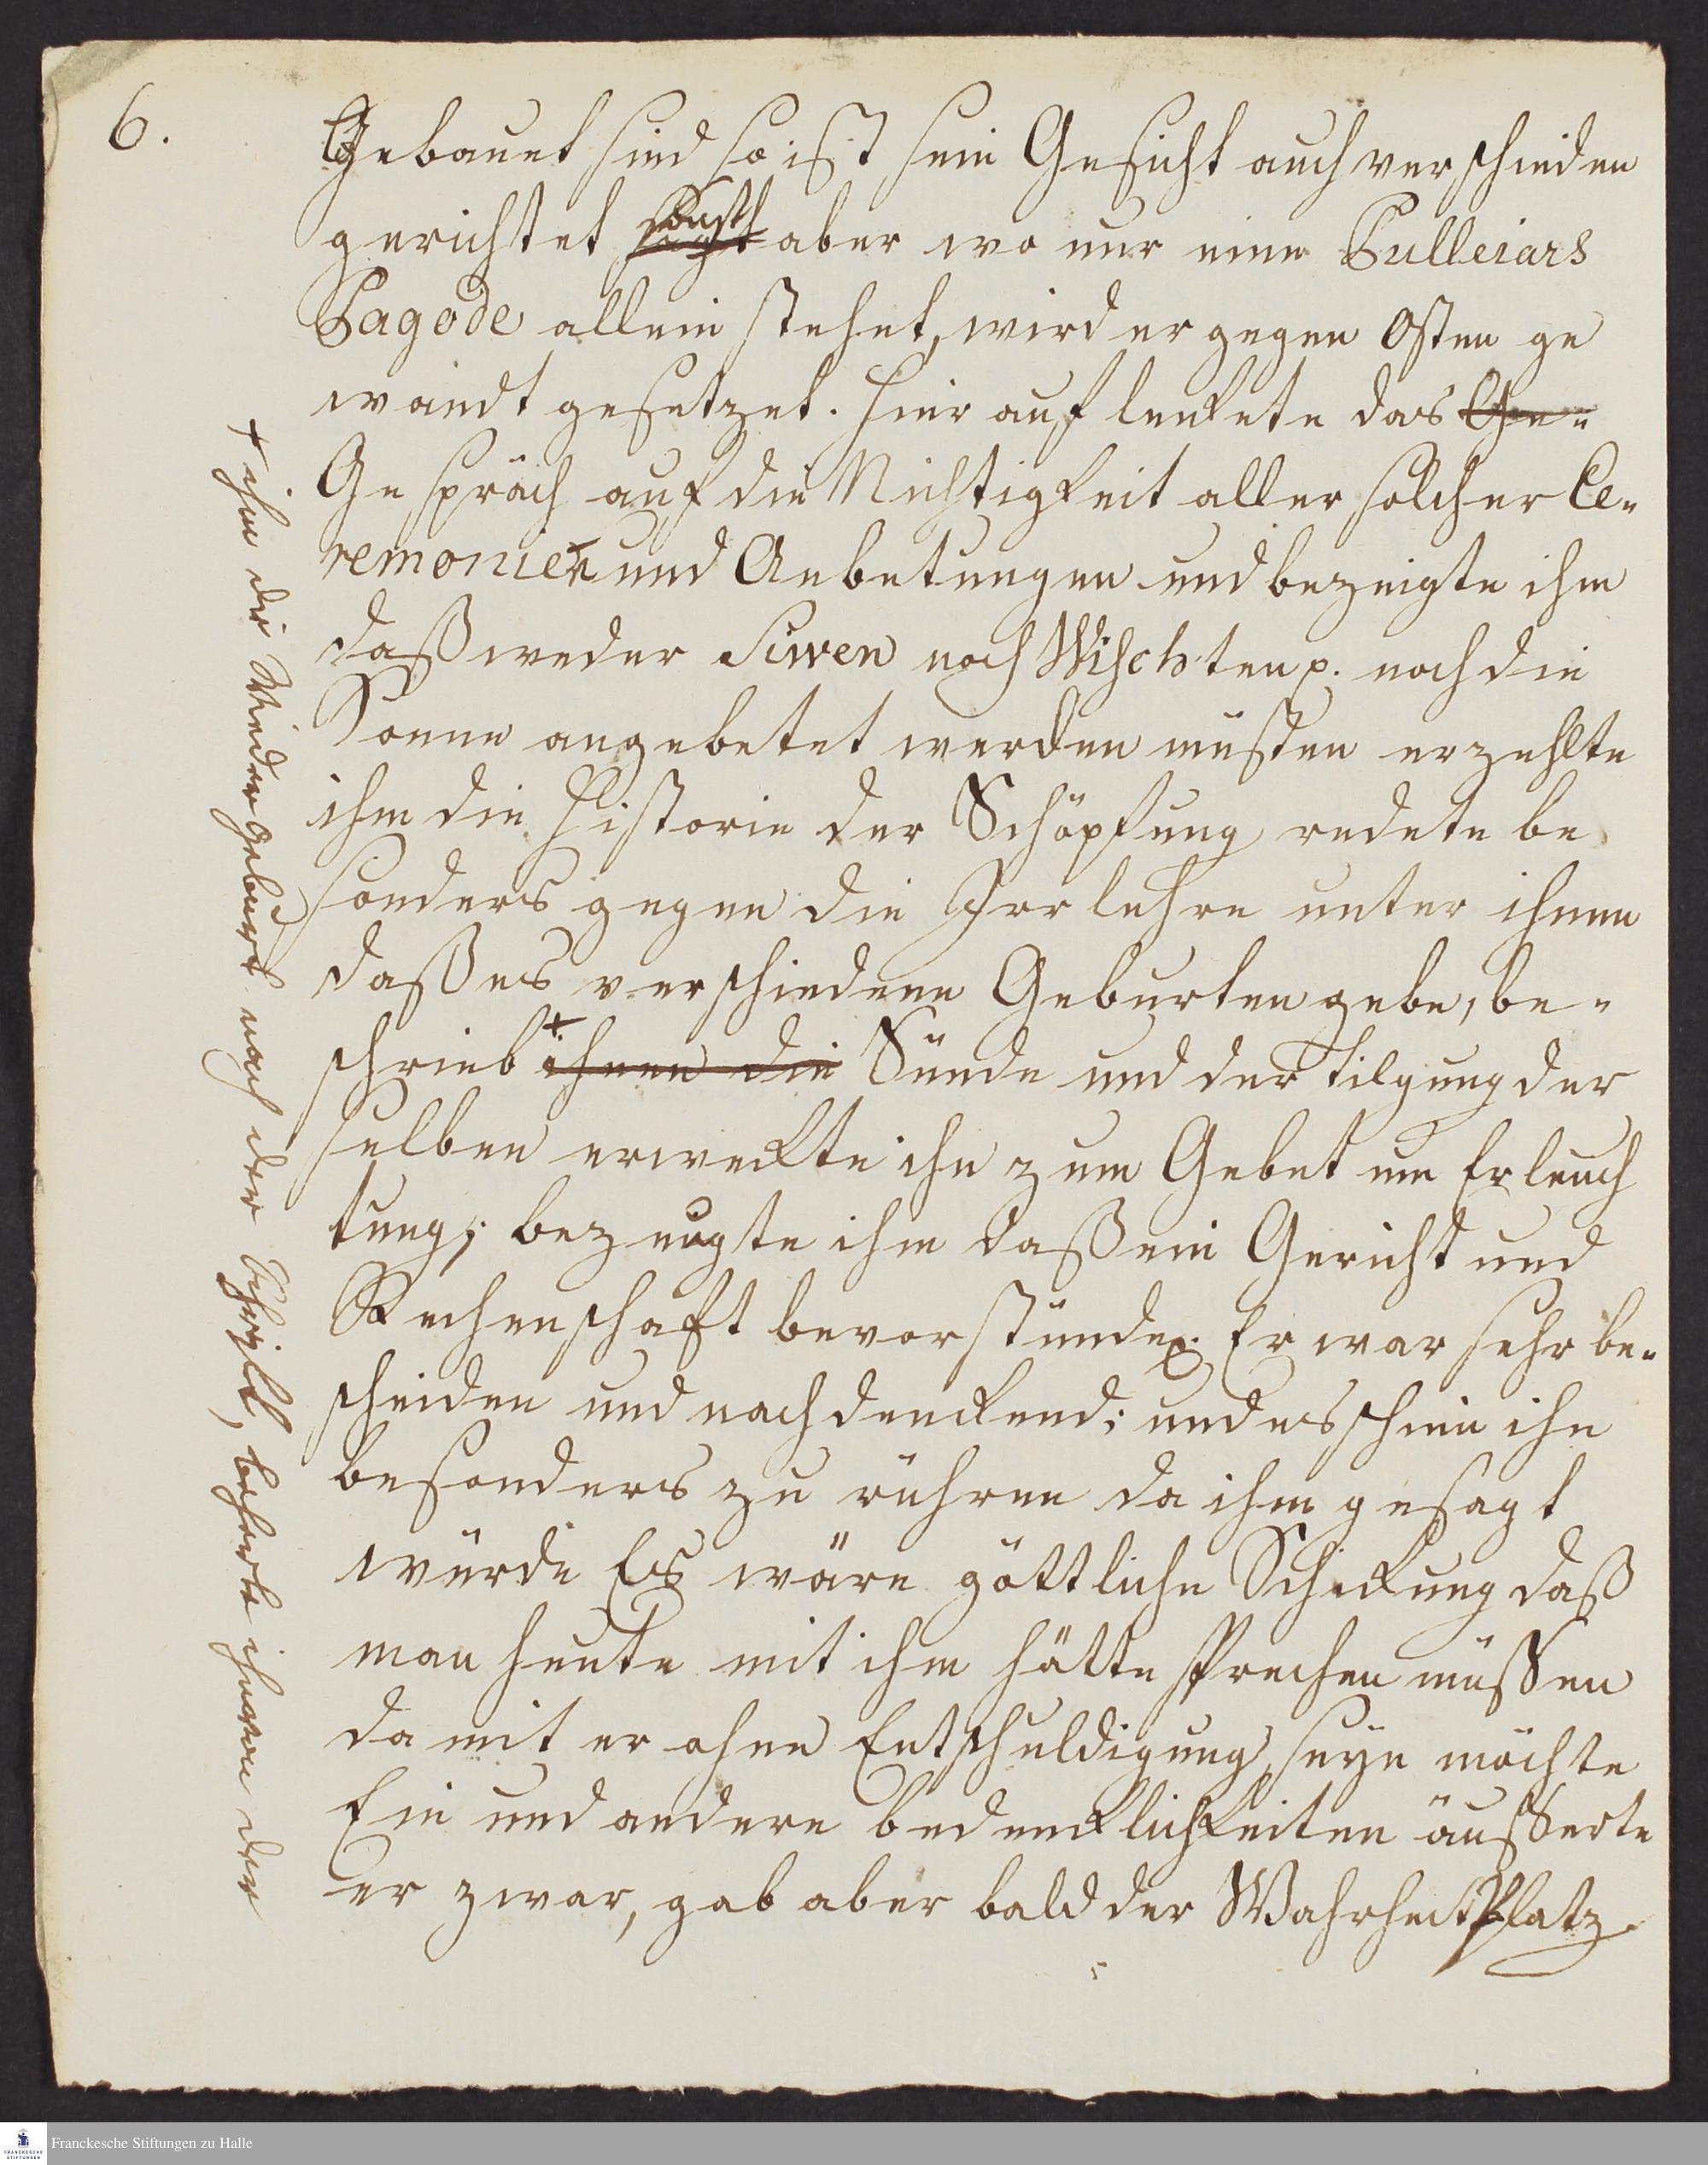 6.
Gebauet sind so ist sein Gesicht auch verschieden
gerichtet sonst aber wo nur eine Pulleiars
Pagode allein stehet, wird er gegen Osten ge
wandt gesetzet. Hier auf lenkete das Ge-
Gespräch auf die Nichtigkeit aller solcher Ce-
remonien und Anbetungen und bezeigte ihm
daß weder Siwen noch Wischtenp. noch die
Sonne angebetet werden müsten erzehlte
ihm die Historie der Schöpfung redete be
sonders gegen die Irrlehre unter ihnen
daß es verschiedene Geburten gebe, be-
schrieb + ihnen die Sünde und der Tilgung der
selben erweckte ihn zum Gebet um Erleuch
tung; bezeugte ihm daß ein Gericht und
Rechenschaft bevorstünde. Er war sehr be-
scheiden und nachdenckend; und es schien ihn
besonders zu rühren da ihm gesagt
würde Es wäre göttliche Schickung daß
man heute mit ihm hätte sprechen müssen
damit er ohne Entschuldigung seyn möchte
Ein und andere bedencklichkeiten äusserte
er zwar, gab aber bald der Wahrheit Platz.
+ ihm die Wiedergeburt nach der Schrifft, belehrte ihn von der